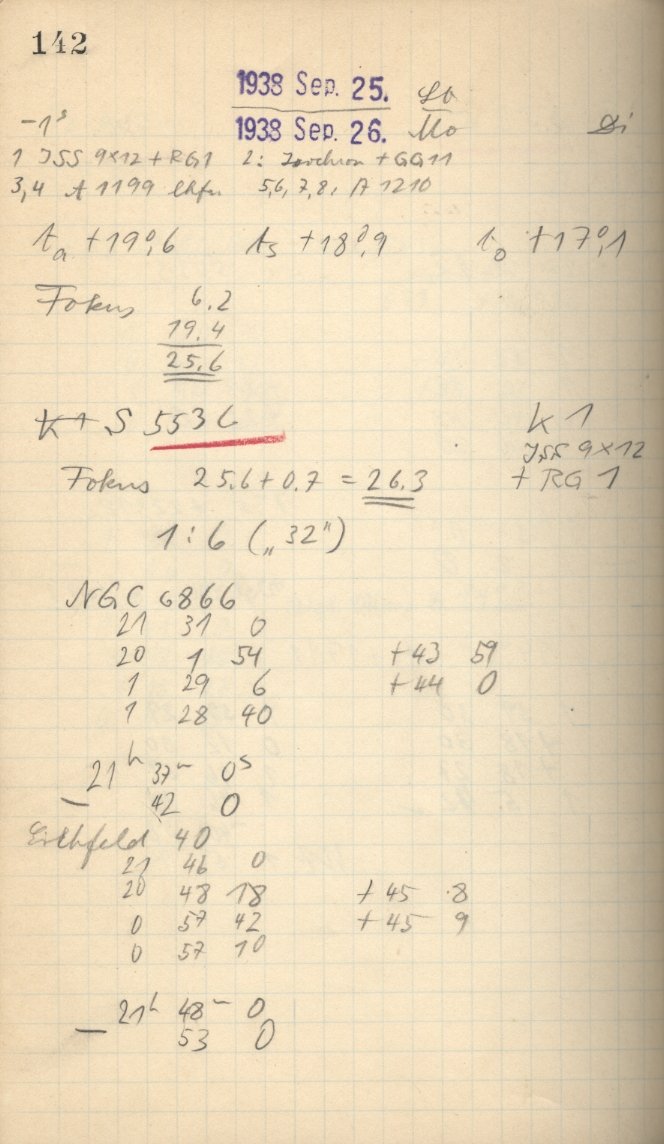 142
1938 Sep. 25. So
1938 Sep. 26. Mo Di
-1ˢ
1 ISS 9x12 + RG1 2: Isochrom + GG11
3,4 A 1199 5,6,7,8, A 1210
tₐ +19°,6 tₛ +18°,9 t₀ +17°,1
Fokus 6.2
19.4
25.6
K+S 5536 K 1
ISS 9x12
Fokus 25.6+0.7 = 26.3 + RG 1
1:6 („32")
NGC 6866
21 31 0
20 1 54 +43 59
1 29 6 +44 0
1 28 40
21ʰ 37ᵐ 0ˢ
— 42 0
Eichfeld 40
21 46 0
20 48 18 +45 8
0 57 42 +45 9
0 57 10
21ʰ 48ᵐ 0
— 53 0